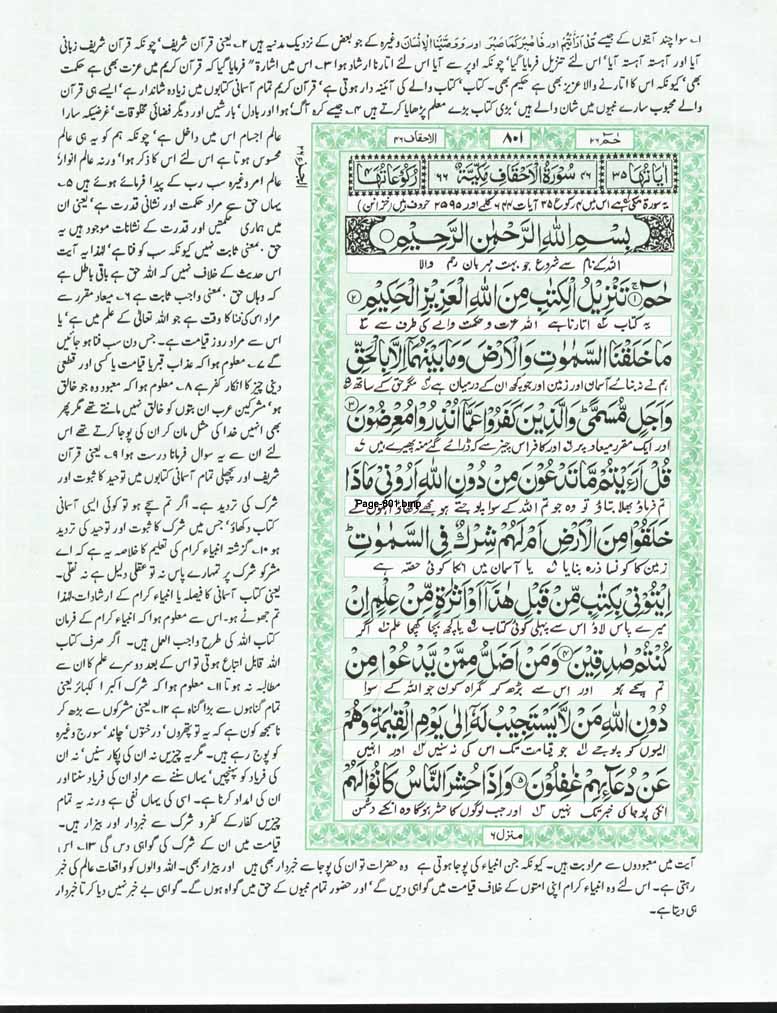 ۱؎ سوا چند آیتوں کے جیسے قُلْ اَرَاَیْتُمْ اور فَاصْبِرْ كَمَا صَبَرَ اور وَوَصَّیْنَا الْاِنْسَانَ وغیرہ کے جو بعض کے نزدیک مدنیہ ہیں ۲؎ یعنی قرآن شریف' چونکہ قرآن شریف زبانی
آیا اور آہستہ آہستہ آیا' اس لئے تنزیل فرمایا گیا' چونکہ اوپر سے آیا اس لئے اتارنا ارشاد ہوا ۳؎ اس میں اشارۃً فرمایا گیا کہ قرآن کریم میں عزت بھی ہے حکمت
بھی' کیونکہ اس کا اتارنے والا عزیز بھی ہے حکیم بھی۔ کتاب' کتاب والے کی آئینہ دار ہوتی ہے' قرآن کریم تمام آسمانی کتابوں میں زیادہ شاندار ہے' ایسے ہی قرآن
والے محبوب سارے نبیوں میں شان والے ہیں' بڑی کتاب بڑے معلم پڑھایا کرتے ہیں ۴؎ جیسے کرہ آگ' ہوا اور بادل' بارشیں اور دیگر فضائی مخلوقات' غرضیکہ سارا
عالم اجسام اس میں داخل ہے' چونکہ ہم کو یہ ہی عالم
محسوس ہوتا ہے اس لئے اس کا ذکر ہوا' ورنہ عالم انوار'
عالم امر وغیرہ سب رب کے پیدا فرمائے ہوئے ہیں ۵؎
یہاں حق سے مراد حکمت اور نشانی قدرت ہے' یعنی ان
میں ہماری حکمتیں اور قدرت کے نشانات موجود ہیں یہ
حق بمعنی ثابت نہیں کیونکہ سب کو فنا ہے' لہٰذا یہ آیت
اس حدیث کے خلاف نہیں کہ اللہ حق ہے باقی باطل ہے
کہ وہاں حق بمعنی واجب ثابت ہے ۶؎ میعاد مقرر سے
مراد اس کی فنا کا وقت ہے جو اللہ تعالیٰ کے علم میں ہے' یا
اس سے مراد روز قیامت ہے۔ جس دن سب فنا ہو جائیں
گے ۷؎ معلوم ہوا کہ عذاب قبر یا قیامت یا کسی اور قطعی
دینی چیز کا انکار کفر ہے ۸؎ معلوم ہوا کہ معبود وہ جو خالق
ہو' مشرکین عرب ان بتوں کو خالق نہیں مانتے تھے مگر پھر
بھی انہیں خدا کی مثل مان کر ان کی پوجا کرتے تھے اس
لئے ان سے یہ سوال فرمانا درست ہوا ۹؎ یعنی قرآن
شریف اور پچھلی تمام آسمانی کتابوں میں توحید کا ثبوت اور
شرک کی تردید ہے۔ اگر تم سچے ہو تو کوئی ایسی آسمانی
کتاب دکھاؤ' جس میں شرک کا ثبوت اور توحید کی تردید
ہو ۱۰؎ گزشتہ انبیاء کرام کی تعلیم کا خلاصہ یہ ہے کہ اے
مشرکو شرک پر تمہارے پاس نہ تو عقلی دلیل ہے نہ نقلی۔
یعنی کتاب آسمانی کا فیصلہ یا انبیاء کرام کے ارشادات' لہٰذا
تم جھوٹے ہو۔ اس سے معلوم ہوا کہ انبیاء کرام کے فرمان
کتاب اللہ کی طرح واجب العمل ہیں۔ اگر صرف کتاب
اللہ قابل اتباع ہوتی تو اس کے بعد دوسرے علم کا ان سے
مطالبہ نہ ہوتا ۱۱؎ معلوم ہوا کہ شرک اکبر الکبائر یعنی
تمام گناہوں سے بڑا گناہ ہے ۱۲؎ یعنی مشرکوں سے بڑھ کر
ناسمجھ کون ہے کہ یہ تو پتھروں' درختوں' چاند' سورج وغیرہ
کو پوج رہے ہیں۔ مگر یہ چیزیں نہ ان کی پکار سنیں' نہ ان
کی فریاد کو پہنچیں' یہاں سننے سے مراد ان کی فریاد سننا اور
ان کی امداد کرنا ہے۔ اسی کی یہاں نفی ہے ورنہ یہ تمام
چیزیں کفار کے کفر و شرک سے خبردار اور بیزار ہیں۔
قیامت میں ان کے شرک کی گواہی دیں گی ۱۳؎ اس
حٰمٓ ۲۶
۸۰۱
الاحقاف ۴۶
اٰیَاتُهَا ۳۵
۴۶ سُوْرَةُ الْاَحْقَافِ مَكِّیَّةٌ ۶۶
رُكُوْعَاتُهَا ۴
یہ سورۃ مکی ہے اس میں ۴ رکوع ۳۵ آیات ۶۴۴ کلمے اور ۲۵۹۵ حروف ہیں (خزائن)
بِسْمِ اللّٰهِ الرَّحْمٰنِ الرَّحِیْمِ
اللہ کے نام سے شروع جو بہت مہربان رحم والا
حٰمٓ ۱ تَنْزِیْلُ الْكِتٰبِ مِنَ اللّٰهِ الْعَزِیْزِ الْحَكِیْمِ ۲
یہ کتاب اتارنا ہے اللہ عزت و حکمت والے کی طرف سے
مَا خَلَقْنَا السَّمٰوٰتِ وَالْاَرْضَ وَمَا بَیْنَهُمَاۤ اِلَّا بِالْحَقِّ
ہم نے نہ بنائے آسمان اور زمین اور جو کچھ ان کے درمیان ہے مگر حق کے ساتھ
وَاَجَلٍ مُّسَمًّی وَالَّذِیْنَ كَفَرُوْا عَمَّاۤ اُنْذِرُوْا مُعْرِضُوْنَ ۳
اور ایک مقرر میعاد پر اور کافر اس چیز سے کہ ڈرائے گئے منہ پھیرے ہیں
قُلْ اَرَءَیْتُمْ مَّا تَدْعُوْنَ مِنْ دُوْنِ اللّٰهِ اَرُوْنِیْ مَاذَا
تم فرماؤ بھلا بتاؤ تو وہ جو تم اللہ کے سوا پوجتے ہو مجھے دکھاؤ انہوں نے
Page-801.bmp
خَلَقُوْا مِنَ الْاَرْضِ اَمْ لَهُمْ شِرْكٌ فِی السَّمٰوٰتِ
زمین کا کونسا ذرہ بنایا یا آسمان میں انکا کوئی حصہ ہے
اِیْتُوْنِیْ بِكِتٰبٍ مِّنْ قَبْلِ هٰذَاۤ اَوْ اَثٰرَةٍ مِّنْ عِلْمٍ اِنْ
میرے پاس لاؤ اس سے پہلی کوئی کتاب یا کچھ بچا کھچا علم اگر
كُنْتُمْ صٰدِقِیْنَ ۴ وَمَنْ اَضَلُّ مِمَّنْ یَّدْعُوْا مِنْ
تم سچے ہو اور اس سے بڑھ کر گمراہ کون جو اللہ کے سوا
دُوْنِ اللّٰهِ مَنْ لَّا یَسْتَجِیْبُ لَهٗۤ اِلٰی یَوْمِ الْقِیٰمَةِ وَهُمْ
ایسوں کو پوجے جو قیامت تک اس کی نہ سنیں اور انہیں
عَنْ دُعَآئِهِمْ غٰفِلُوْنَ ۵ وَاِذَا حُشِرَ النَّاسُ كَانُوْا لَهُمْ
انکی پوجا کی خبر تک نہیں اور جب لوگوں کا حشر ہوگا وہ انکے دشمن
منزل ۶
آیت میں معبودوں سے مراد بت ہیں۔ کیونکہ جن انبیاء کی پوجا ہوتی ہے وہ حضرات تو ان کی پوجا سے خبردار بھی ہیں اور بیزار بھی۔ اللہ والوں کو واقعات عالم کی خبر
رہتی ہے۔ اس لئے وہ انبیاء کرام اپنی امتوں کے خلاف قیامت میں گواہی دیں گے' اور حضور تمام نبیوں کے حق میں گواہ ہوں گے۔ گواہی بے خبر نہیں دیا کرتا خبردار
ہی دیتا ہے۔